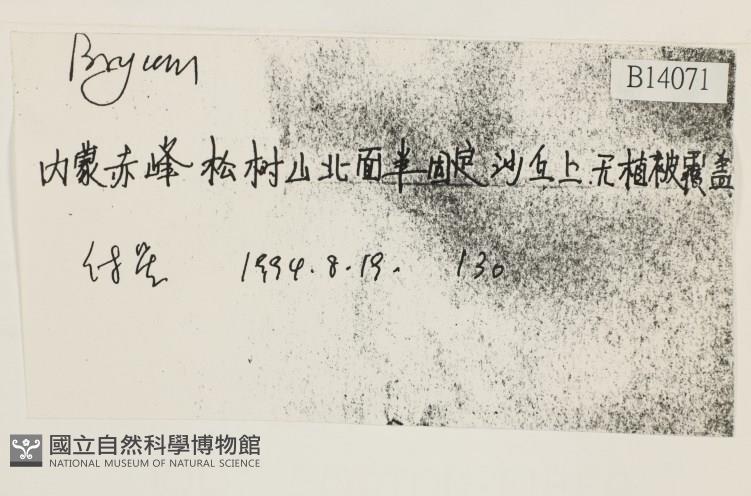 Bryum
B14071
内蒙赤峰 松树山北面半固定沙丘上 无植被覆盖
1994.8.19. 130
國立自然科學博物館
NATIONAL MUSEUM OF NATURAL SCIENCE